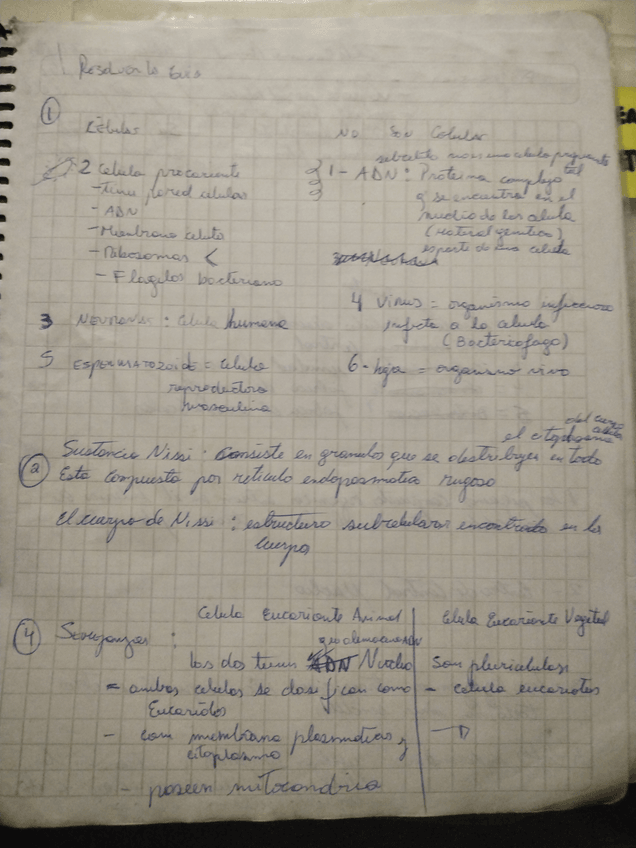 Resolver la Guia
1
Células
No Son Celular
2 Celula procarionte
- Tiene pared celular
- ADN
- Membrana celula
- Ribosomas <
- Flagelos bacteriano
1- ADN: Proteina compleja
q se encuentra en el
nucleo de las celula
(Material genetico)
es parte de una celula
3 NEURONAS: Celula humana
4 Virus = organismo infeccioso
infecta a la celula
(Bacteriofago)
5 ESPERMATOZOIDE = Celula
reproductora
masculina
6- hoja = organismo vivo
del cuerpo
el citoplasma
2
Sustancia Nissi: Consiste en granulos que se destribuyen en todo
Esta compuesta por reticulo endoplasmatica rugoso
El cuerpo de Nissi: estructura subcelular encontrada en los
Cuerpo
4
Semejanzas:
Celula Eucarionte Animal
Celula Eucarionte Vegetal
Las dos tienen ADN Nucleo
Son pluricelulas
= ambas celulas se clasifican como
Eucariotas
- celula eucariotas
- con membrana plasmatica y
citoplasma
- poseen mitocondria